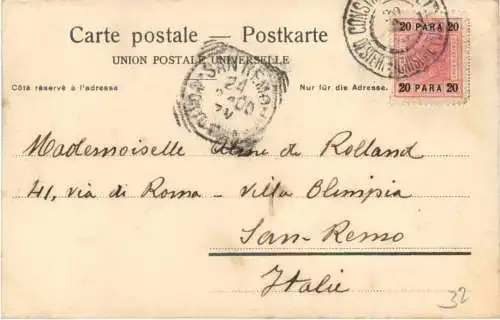 Carte postale — Postkarte
UNION POSTALE UNIVERSELLE
Côté réservé à l'adresse
Nur für die Adresse.
20 PARA 20
20 PARA 20
SAN REMO
24
Mademoiselle de Rolland
41, via di Roma - Villa Olimpia
San-Remo
Italie
32